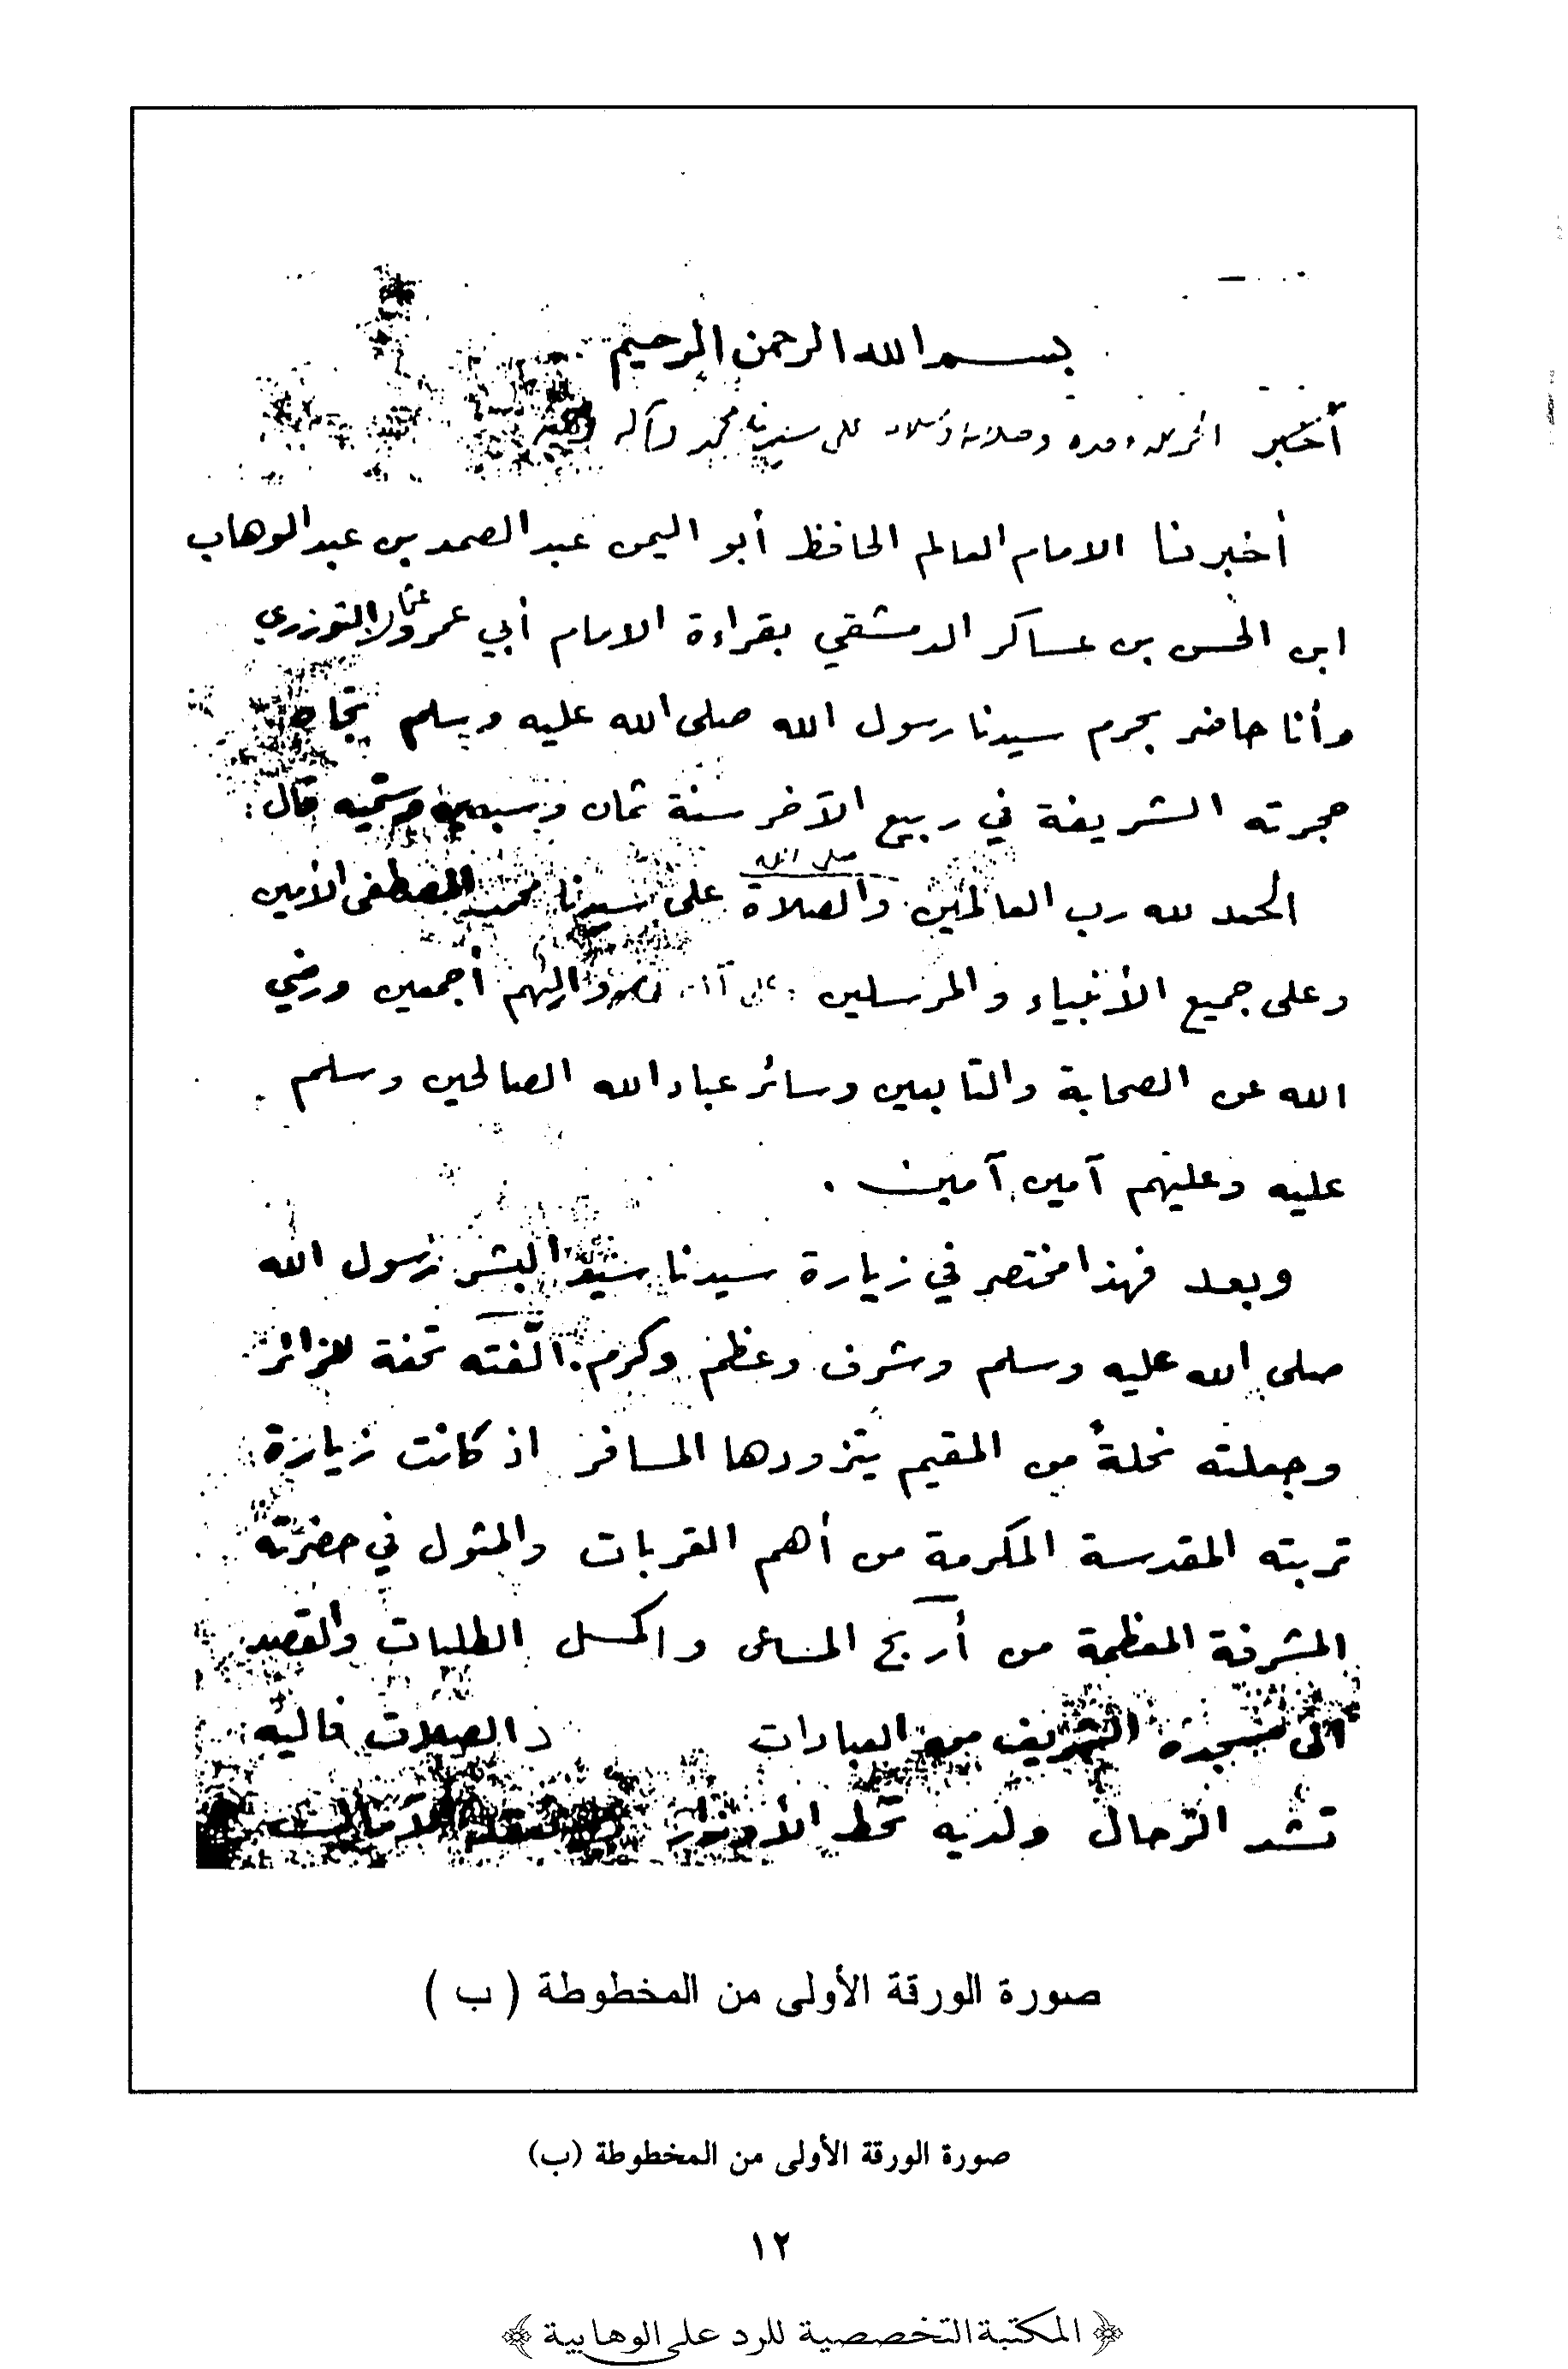 بسم الله الرحمن الرحيم
أخبر الحمد لله وحده وصلاته وسلامه على سيدنا محمد وآله
أخبرنا الامام العالم الحافظ أبو اليمن عبد الصمد بن عبد الوهاب
ابن الحسن بن عساكر الدمشقي بقراءة الامام أبي عمرو التوزري
وأنا حاضر بحرم سيدنا رسول الله صلى الله عليه وسلم تجاه
حجرته الشريفة في ربيع الآخر سنة ثمان وسبعين وستمية قال :
صلى الله
الحمد لله رب العالمين والصلاة على سيدنا محمد المصطفى الأمين
وعلى جميع الأنبياء والمرسلين وعلى آله أجمعين ورضي
الله عن الصحابة والتابعين وسائر عباد الله الصالحين وسلم
عليه وعليهم آمين آمين .
وبعد فهذا مختصر في زيارة سيدنا سيد البشر رسول الله
صلى الله عليه وسلم وشرف وعظم وكرم . ألّفته تحفة للزائر
وجعلته نحلةً من المقيم يتزودها المسافر اذ كانت زيارة
تربته المقدسة المكرمة من أهم القربات والمثول في حضرته
المشرفة المعظمة من أربح المساعى واكمل الطلبات والقصد
الى مسجده الشريف من العبادات والصلات فاليه
تشد الرحال ولديه تحط الأوزار الآمال
صورة الورقة الأولى من المخطوطة ( ب )
صورة الورقة الأولى من المخطوطة (ب)
١٢
﴿ المكتبة التخصصية للرد على الوهابية ﴾